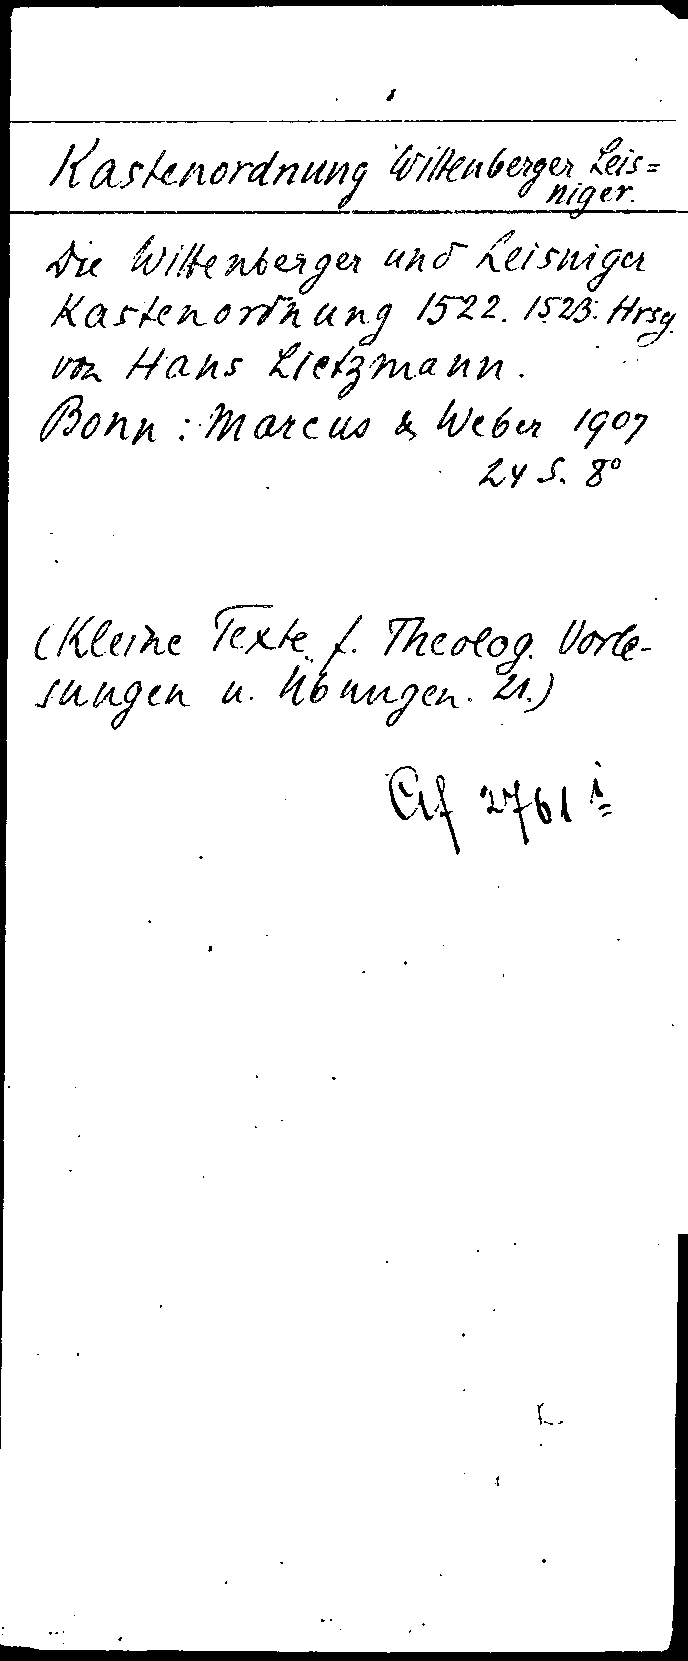 Kastenordnung Wittenberger Leis=
niger.
Die Wittenberger und Leisniger
Kastenordnung 1522. 1523. Hrsg.
von Hans Lietzmann.
Bonn: Marcus & Weber 1907
24 S. 8°
(Kleine Texte f. Theolog. Vorle-
sungen u. Übungen. 21.)
Cif 2761 i